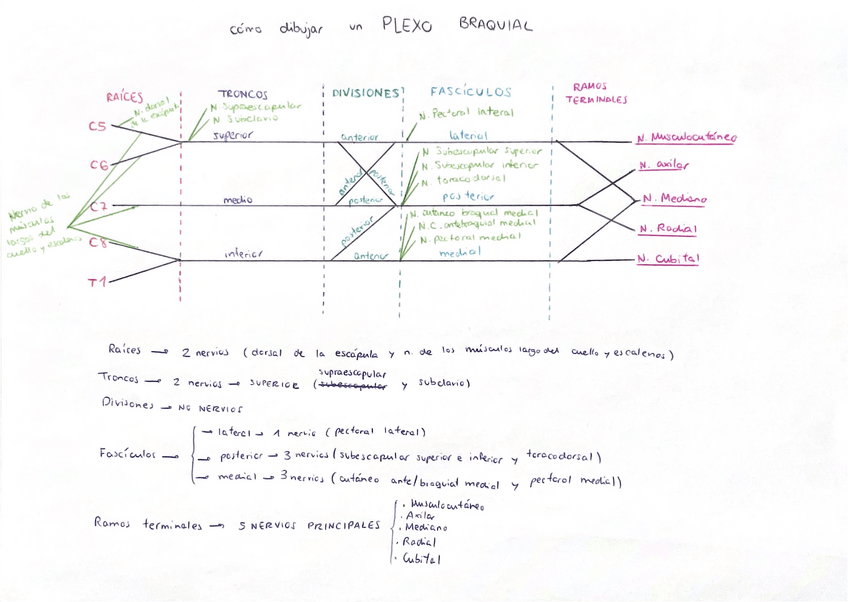 cómo dibujar un PLEXO BRAQUIAL
RAÍCES
TRONCOS
DIVISIONES
FASCÍCULOS
RAMOS
TERMINALES
N. dorsal
C5
C6
C7
C8
T1
Nervio de los
músculos
largos del
cuello y escalenos
N. Supraescapular
N. Subclavio
superior
medio
inferior
anterior
anterior
posterior
posterior
posterior
anterior
N. Pectoral lateral
lateral
N. Subescapular superior
N. Subescapular inferior
N. toracodorsal
posterior
N. cutaneo braquial medial
N.C. antebraquial medial
N. pectoral medial
medial
N. Musculocutáneo
N. axilar
N. Mediano
N. Radial
N. Cubital
Raíces → 2 nervios (dorsal de la escápula y n. de los músculos largo del cuello y escalenos)
supraescapular
Troncos → 2 nervios → SUPERIOR (subescapular y subclavio)
Divisones → NO NERVIOS
→ lateral → 1 nervio (pectoral lateral)
Fascículos → → posterior → 3 nervios (subescapular superior e inferior y toracodorsal)
→ medial → 3 nervios (cutáneo ante/braquial medial y pectoral medial)
Ramos terminales → 5 NERVIOS PRINCIPALES
· Musculocutáneo
· Axilar
· Mediano
· Radial
· Cubital